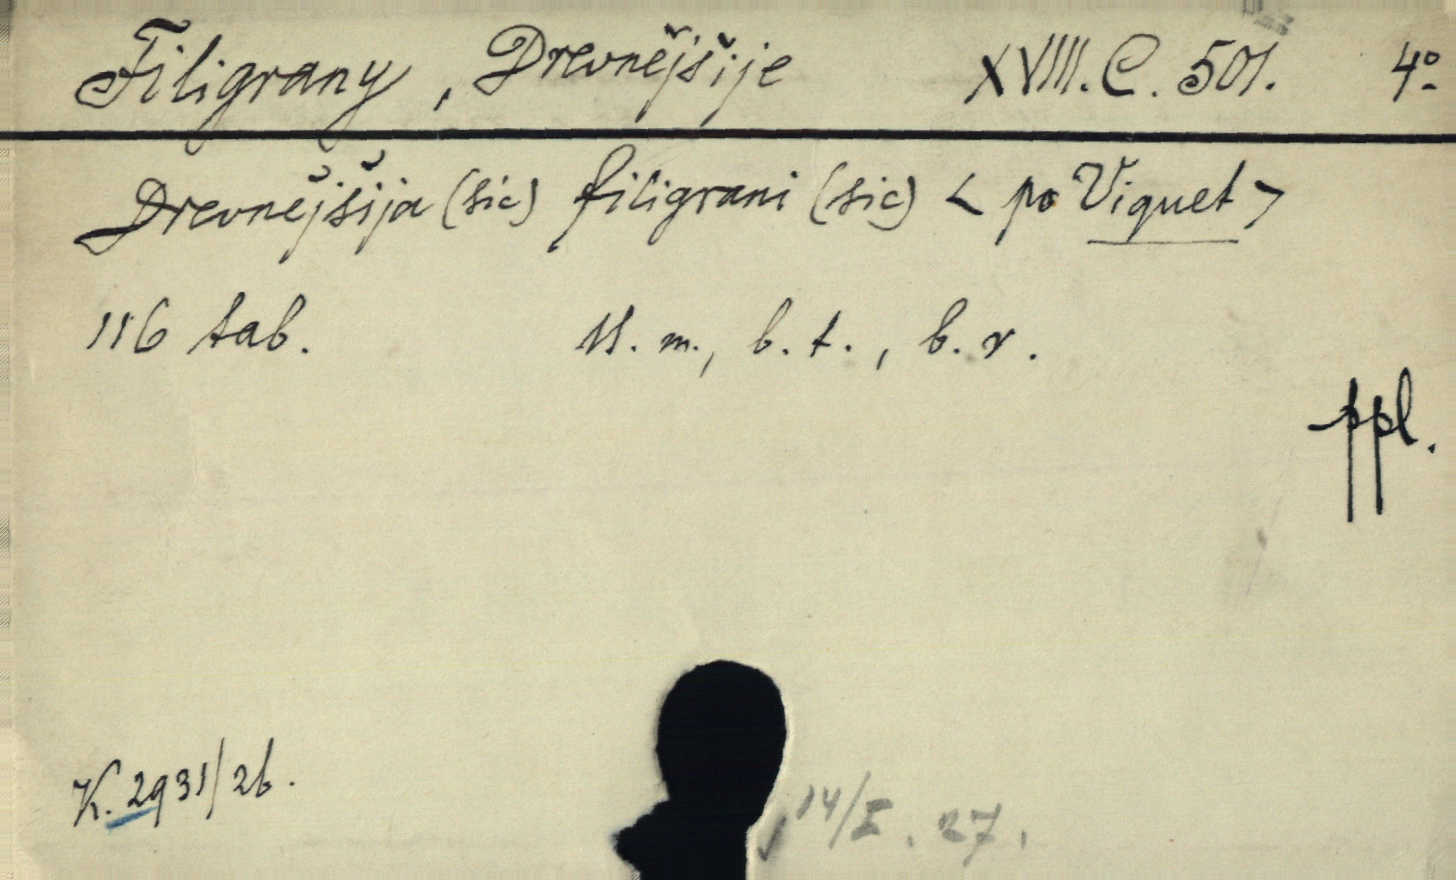 Filigrany, Drevnějšije XVIII.C.501. 4º
Drevnějšija (sic) filigrani (sic) < po Viquet >
116 tab. U. m., b. t., b. r.
ppl.
K. 2931/26.
14/I. 27.